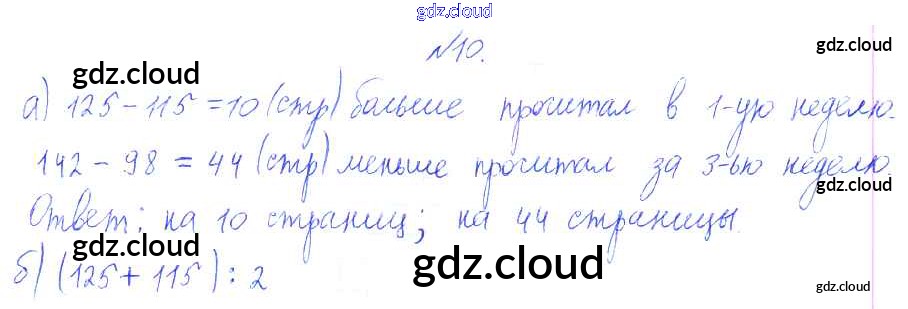 gdz.cloud
№10.
gdz.cloud
gdz.cloud
а) 125 - 115 = 10 (стр) больше прочитал в 1-ую неделю.
gdz.cloud
142 - 98 = 44 (стр) меньше прочитал за 3-ью неделю.
gdz.cloud
Ответ: на 10 страниц; на 44 страницы.
gdz.cloud
gdz.cloud
б) (125 + 115) : 2
gdz.cloud